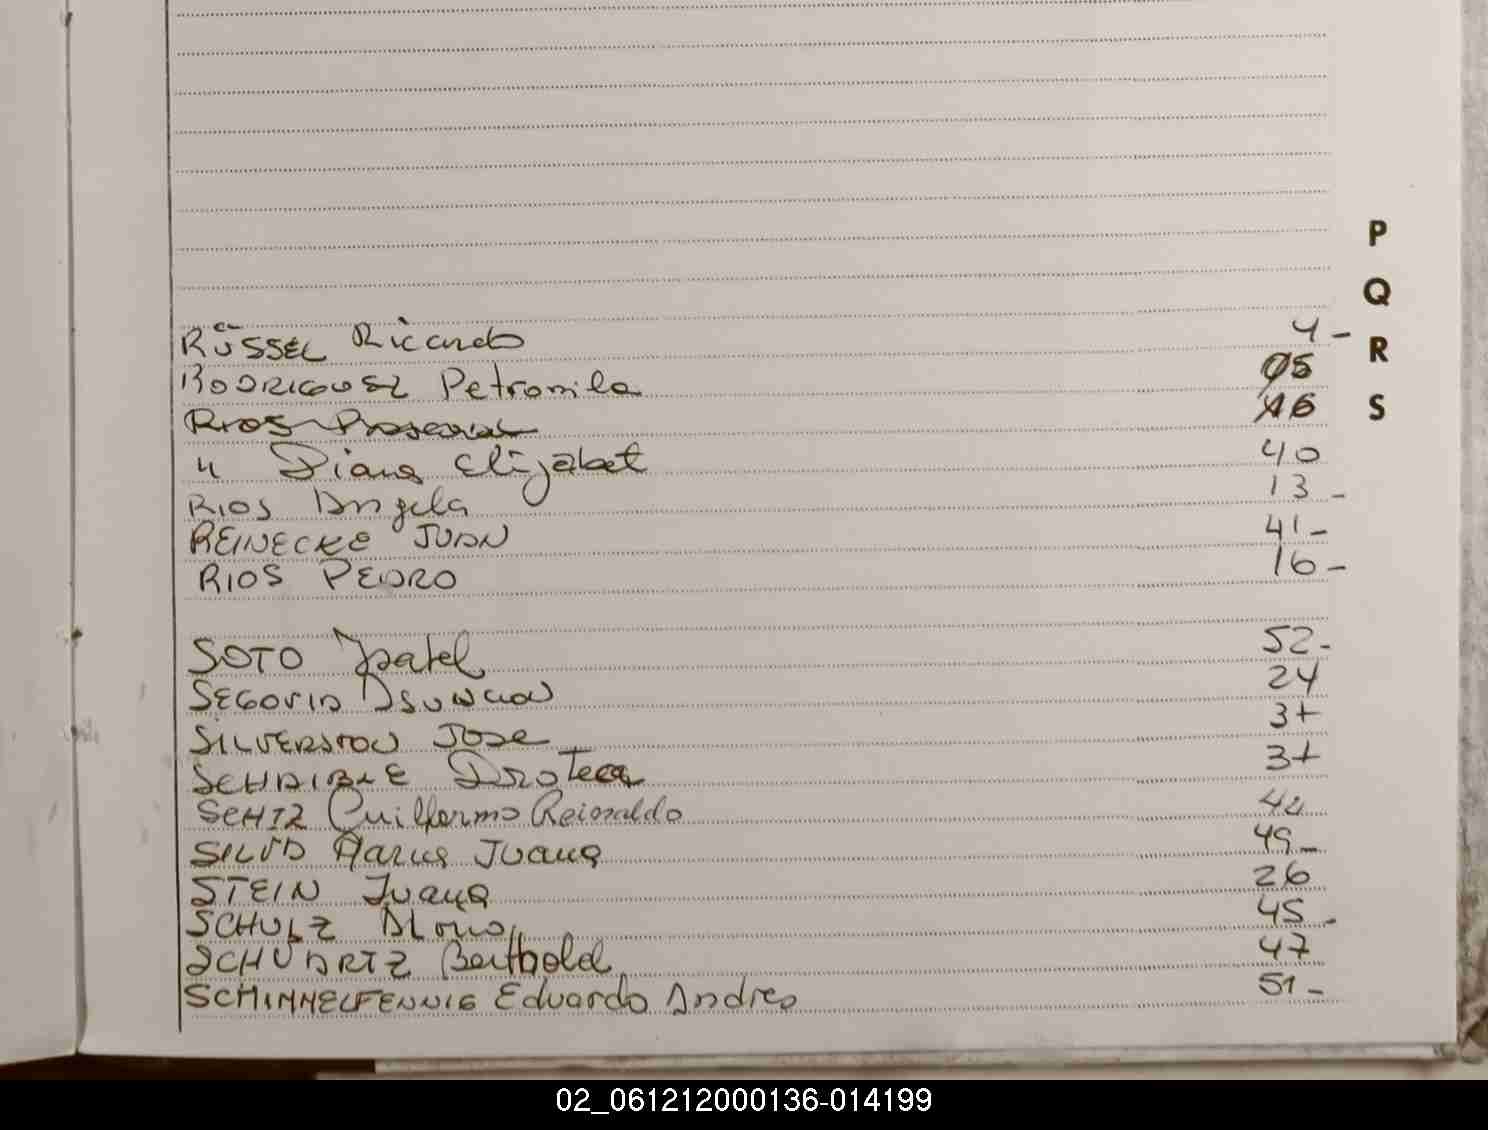 P
Q
R
S
RÜSSEL Ricardo 4-
RODRIGUEZ Petronila 05
Rios 16
" Diana Elizabet 40
RIOS Angela 13 -
REINECKE JUAN 41-
RIOS PEDRO 16-
SOTO Isabel 52-
SEGOVIA Asuncion 24
SILVERSTON JOSE 37
SCHAIBLE Dorotea 37
SCHTZ Guillermo Reinaldo
SILVA Maria Juana 49-
STEIN Juana 26
SCHULZ 45-
SCHUARTZ Berthold 47
SCHIMMELFENNIG Eduardo Andres 51-
02_061212000136-014199